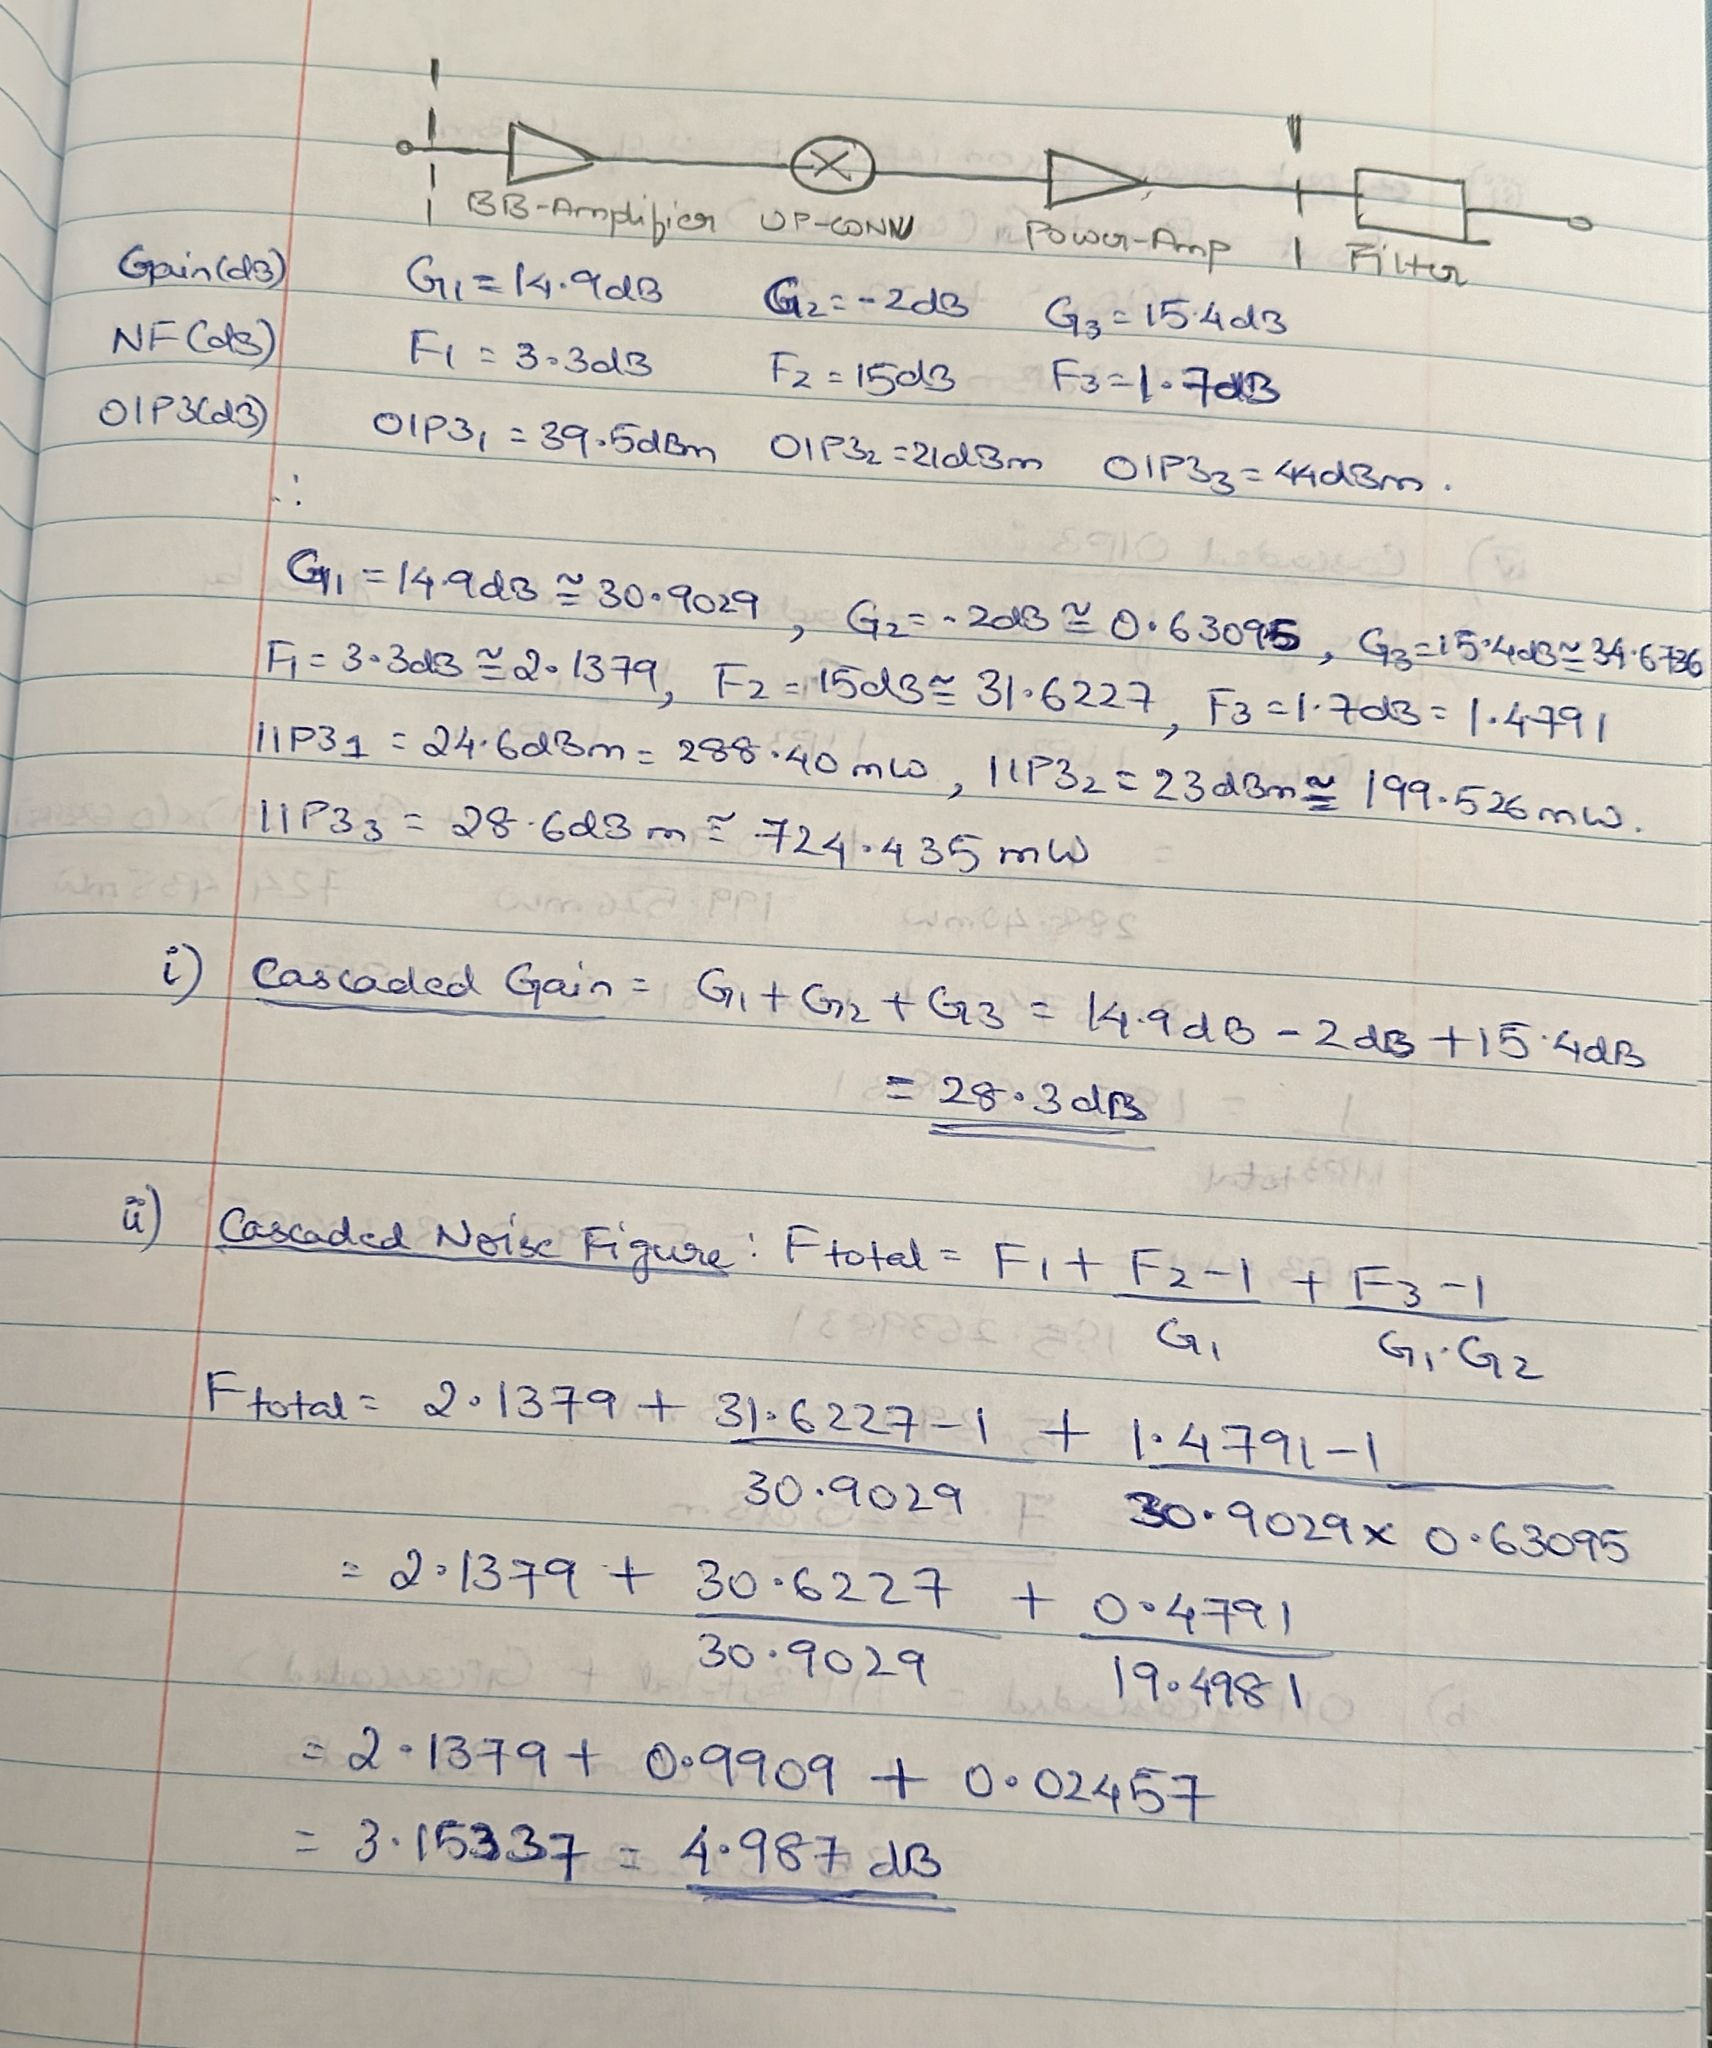 BB-Amplifier UP-CONV Power-Amp Filter
Gain(dB) G₁ = 14.9dB G₂ = -2dB G₃ = 15.4dB
NF(dB) F₁ = 3.3dB F₂ = 15dB F₃ = 1.7dB
OIP3(dB) OIP3₁ = 39.5dBm OIP3₂ = 21dBm OIP3₃ = 44dBm.
∴
G₁ = 14.9dB ≅ 30.9029, G₂ = -2dB ≅ 0.63095, G₃ = 15.4dB ≅ 34.6736
F₁ = 3.3dB ≅ 2.1379, F₂ = 15dB ≅ 31.6227, F₃ = 1.7dB = 1.4791
IIP3₁ = 24.6dBm = 288.40mW, IIP3₂ = 23dBm ≅ 199.526mW.
IIP3₃ = 28.6dBm ≅ 724.435mW
i) Cascaded Gain = G₁ + G₂ + G₃ = 14.9dB - 2dB + 15.4dB
= 28.3dB
ii) Cascaded Noise Figure : Ftotal = F₁ + (F₂ - 1)/G₁ + (F₃ - 1)/(G₁·G₂)
Ftotal = 2.1379 + (31.6227 - 1)/30.9029 + (1.4791 - 1)/(30.9029 x 0.63095)
= 2.1379 + 30.6227/30.9029 + 0.4791/19.4981
= 2.1379 + 0.9909 + 0.02457
= 3.15337 = 4.987 dB